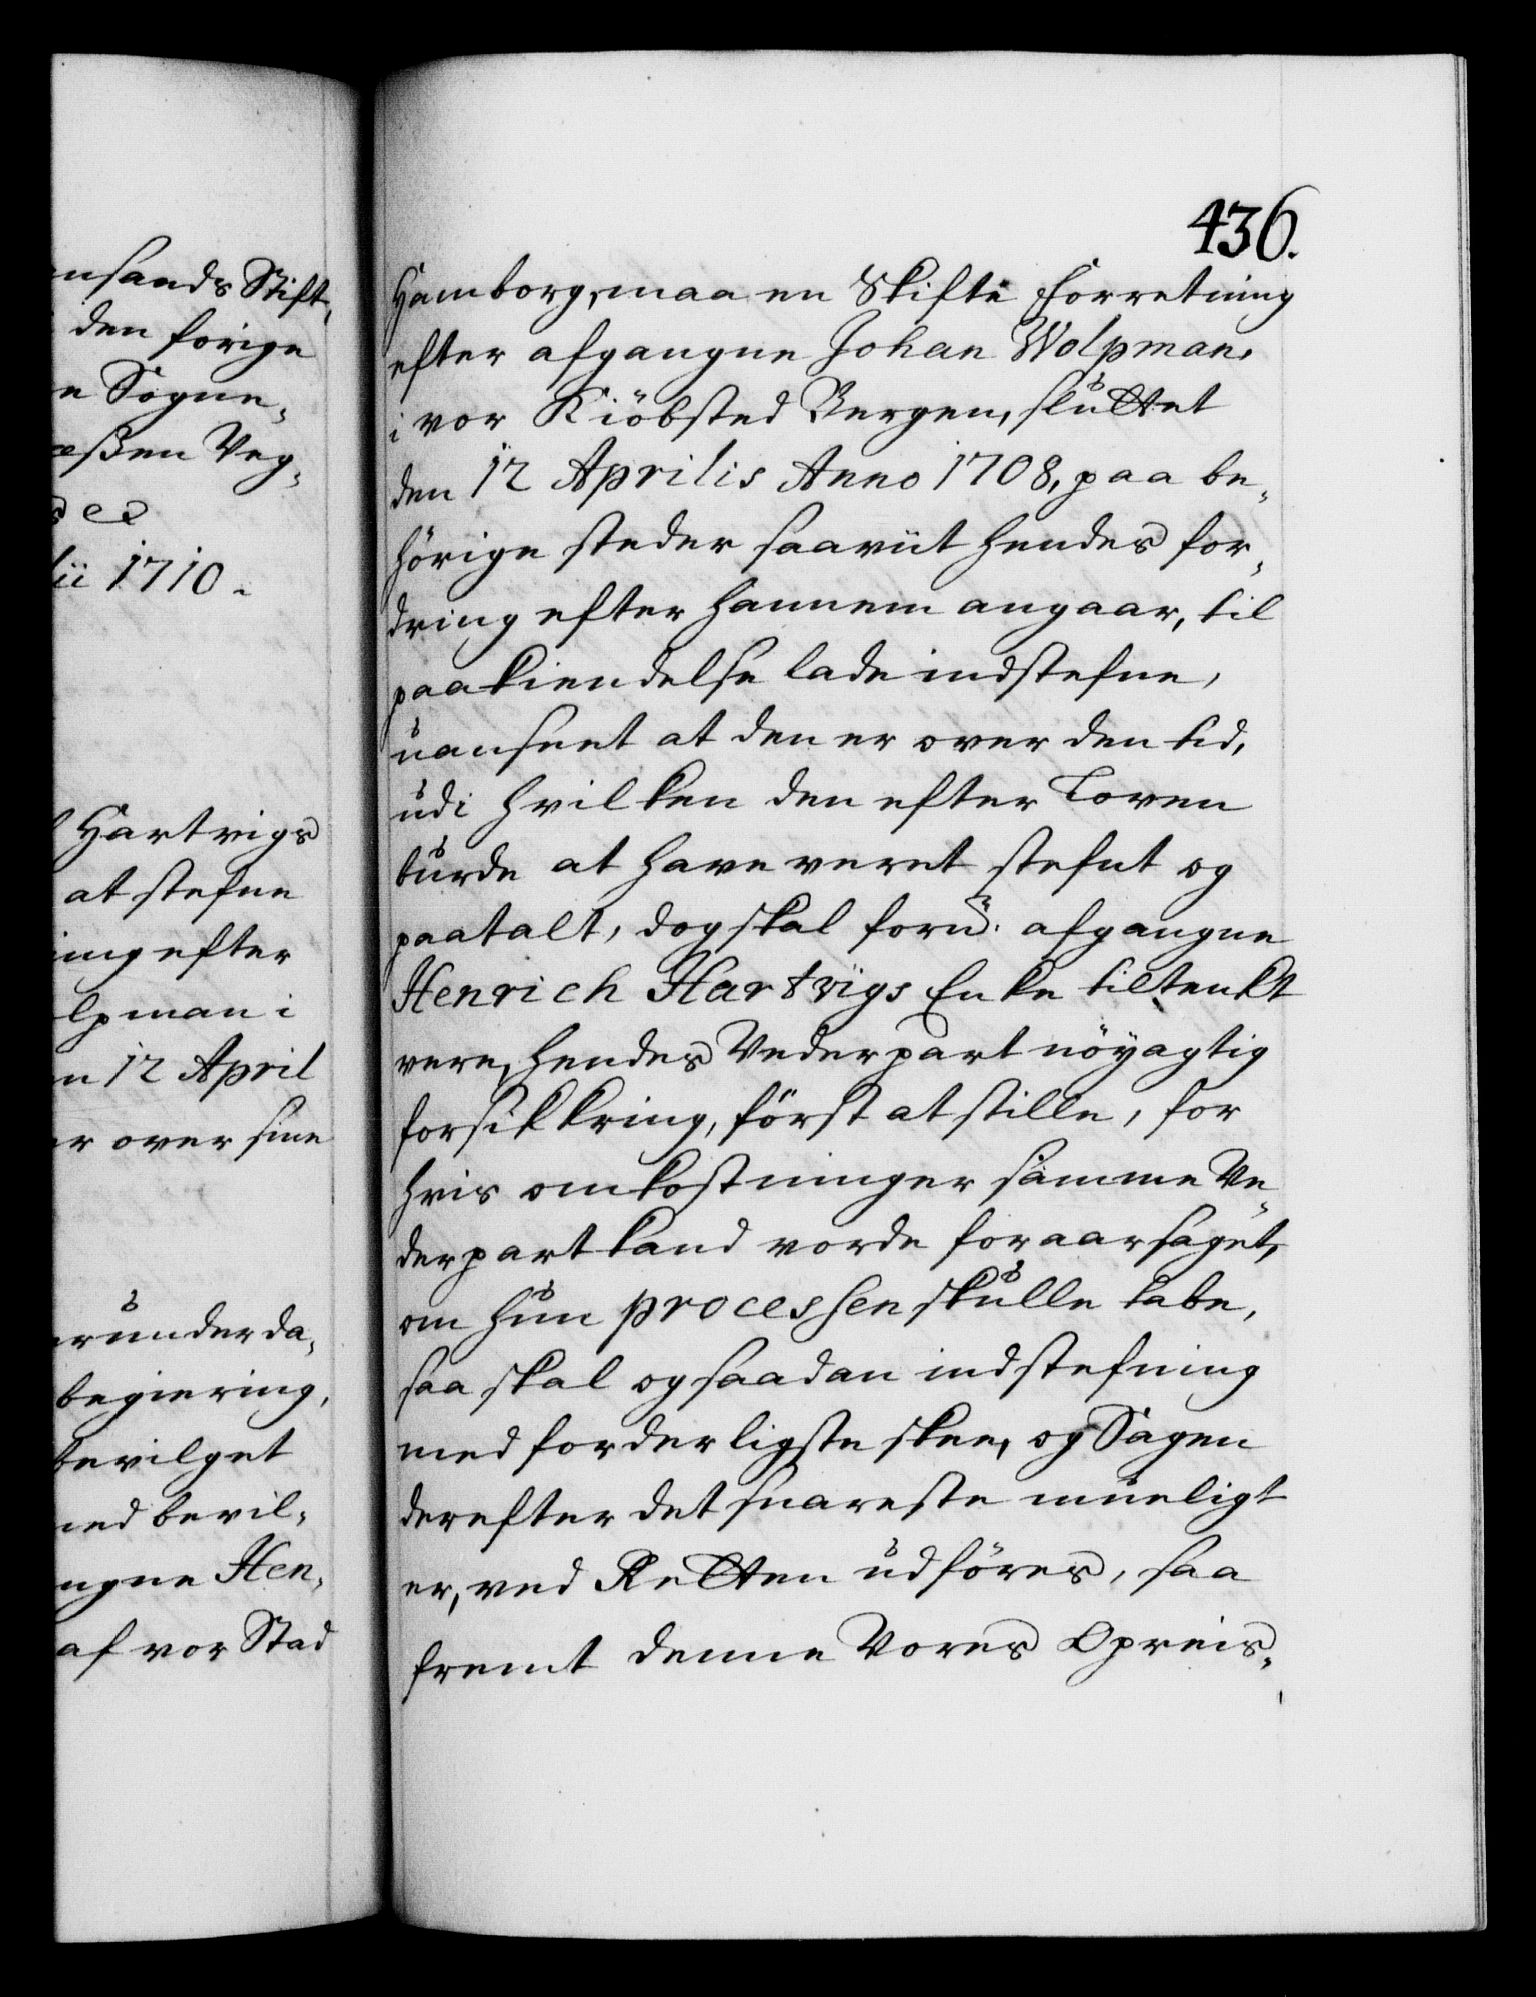 ensands Stift,
den forige
e Sogne-
essen Veg-
ii 1710.
Hartvigs
at stefne
ing efter
lpman i
n 12 April
er over sine
erunderda-
begiering,
bevilget
med bevil-
ngne Hen-
af vor Stad
436.
Hamborg, maa en Skifte forretning
efter afgangne Johan Wolpman,
i vor Kiöbsted Bergen, sluttet
den 12 Aprilis Anno 1708, paa be-
hörige steder saaviit hendes for-
dring efter hannem angaar, til
paakiendelse lade indstefne,
uanseet at den er over den tid,
udi hvilken den efter Loven
burde at have veret stefnt og
paatalt, dog skal forn: afgangne
Henrich Hartvigs Enke tiltenkt
vere, hendes Vederpart nöyagtig
forsikkring, först at stille, for
hvis omkostninger samme Ve-
derpart kand vorde foraarsaget,
om hun processen skulle tabe,
saa skal og saadan indstefning
med forderligste skee, og Sagen
derefter det snareste mueligt
er, ved Retten udföres, saa
fremt denne Vores Opreis-